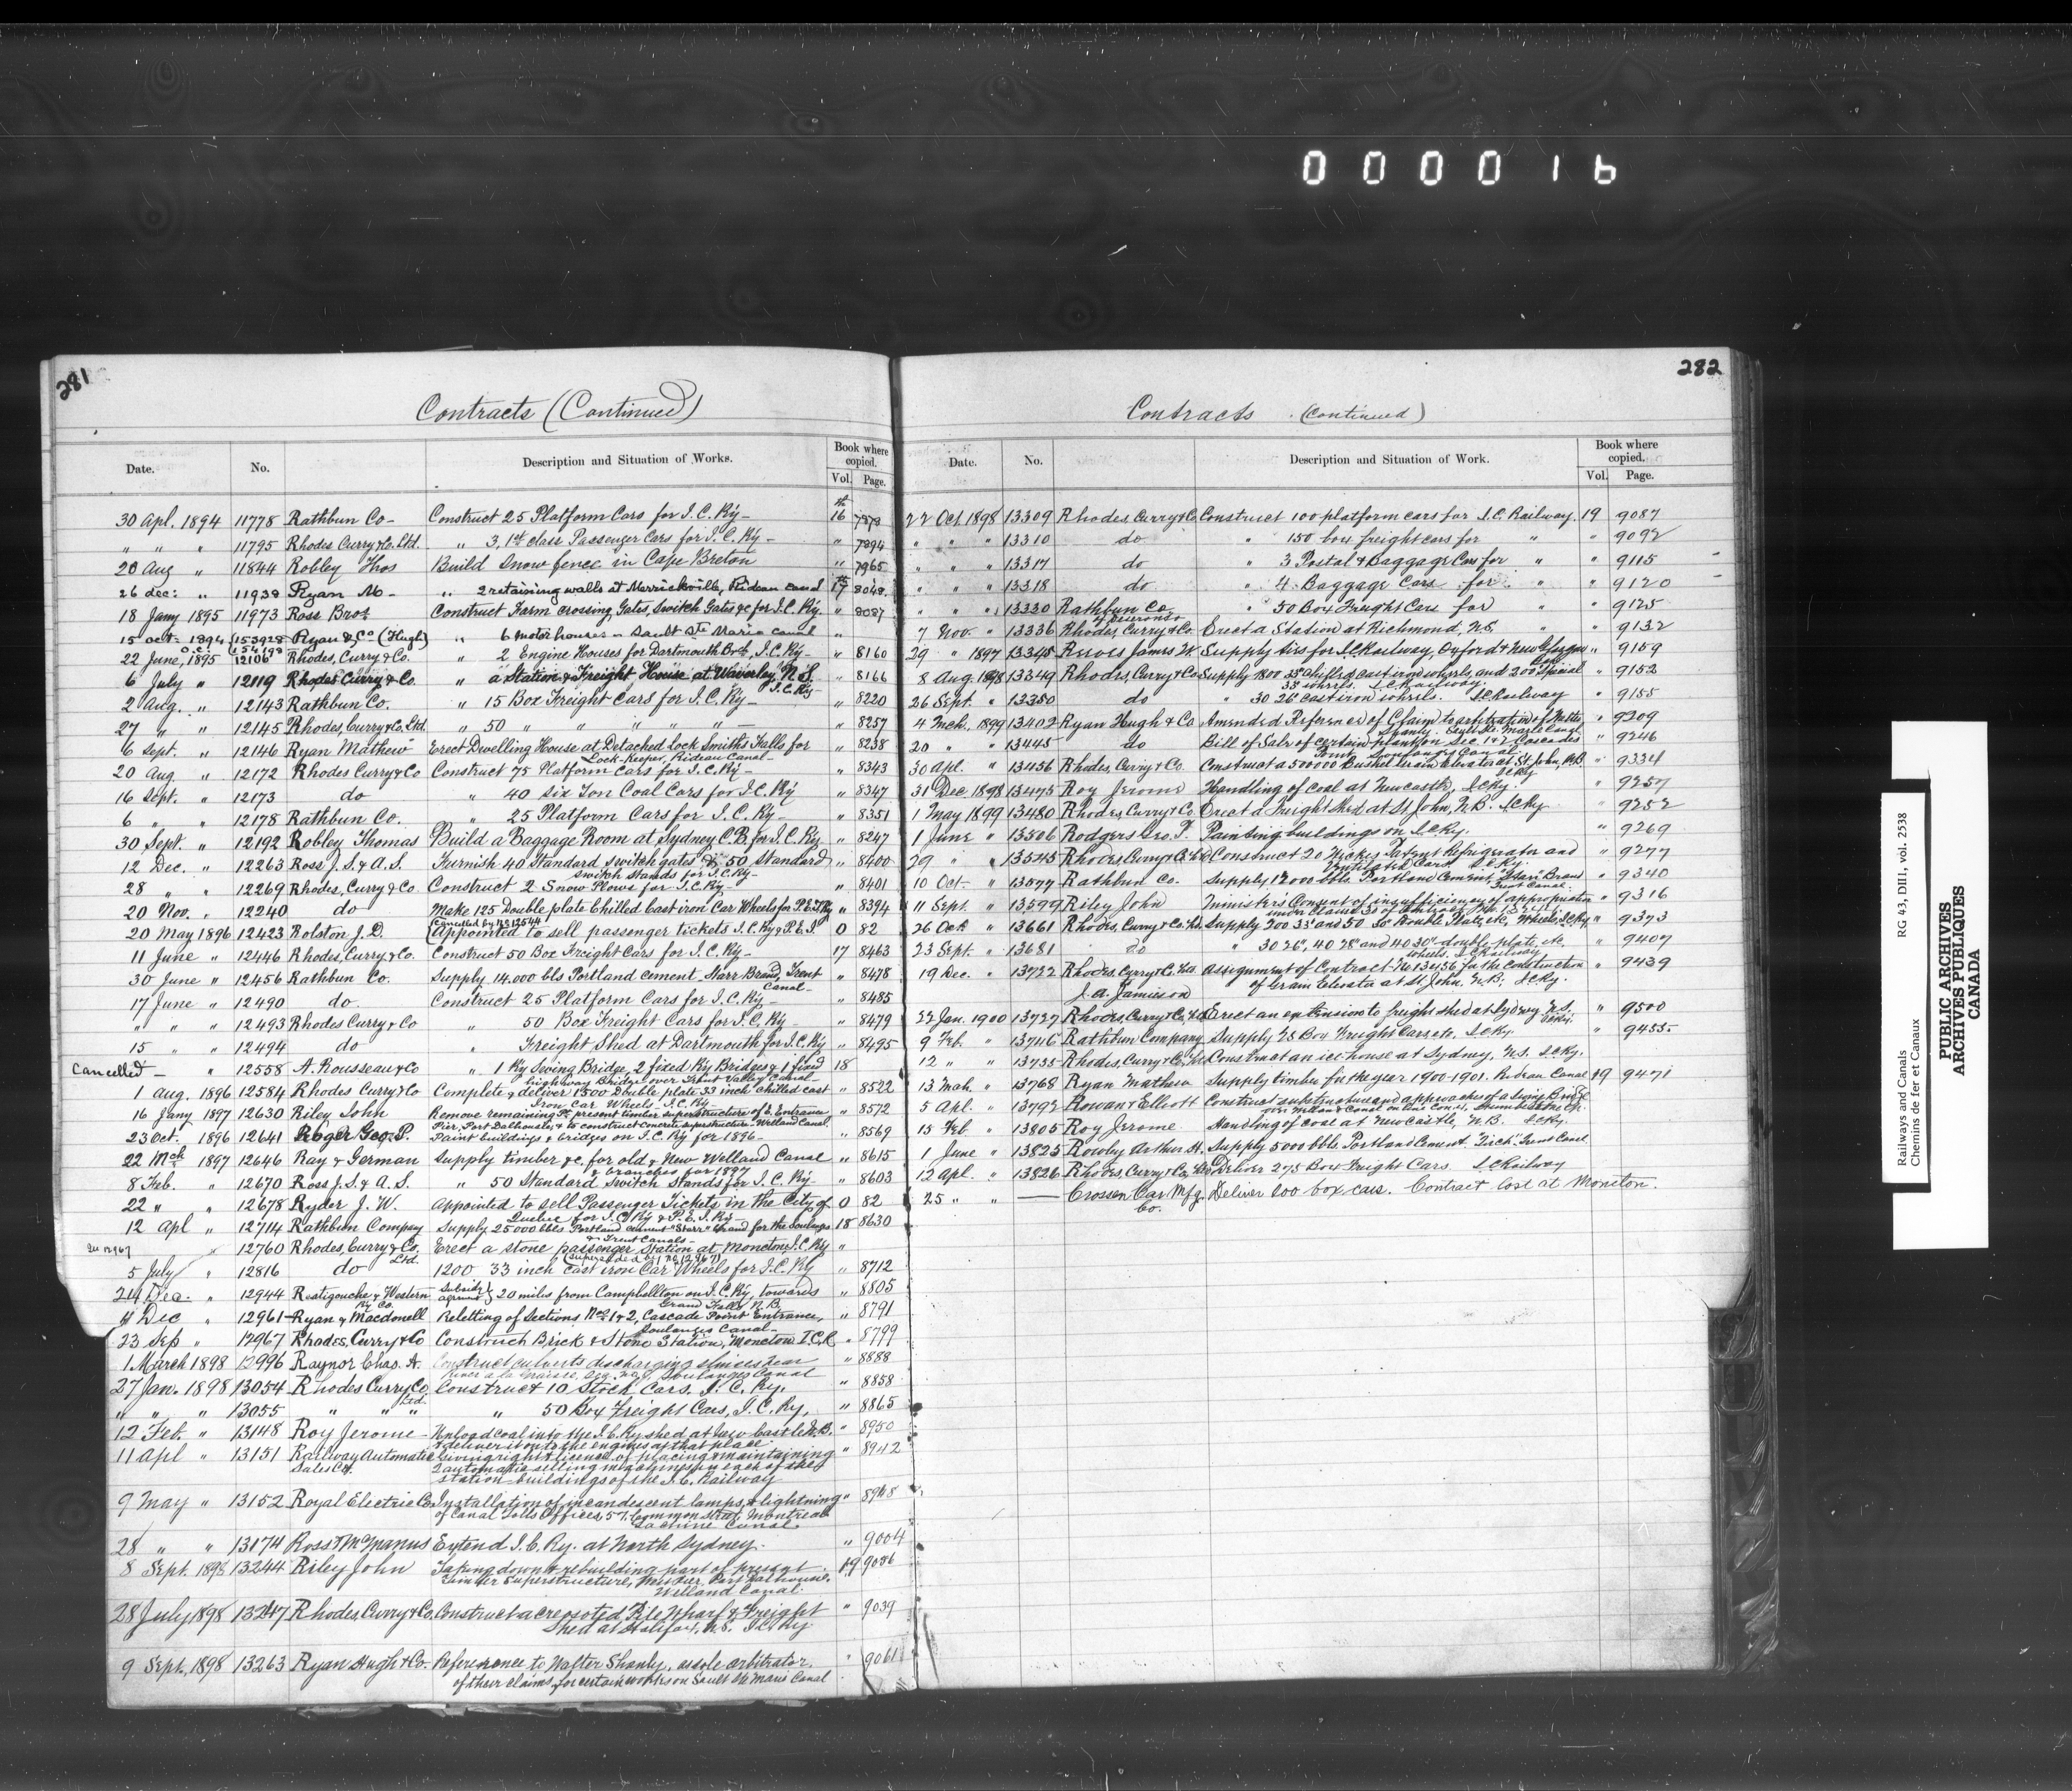 000016
281
Contracts (Continued)
Date. No. Description and Situation of Works. Book where copied. Vol. Page.
30 Apl. 1894 11778 Rathbun Co- Construct 25 Platform Cars for I.C. Ry- 16
" " " 11795 Rhodes Curry & Co. Ltd. " 3, 1st class Passenger Cars for I.C. Ry- " 7894
20 Aug " 11844 Robley Thos Build Snow fence in Cape Breton " 7965
26 dec: " 11938 Ryan M- " 2 retaining walls at Merrickville, Rideau canal 17 8048
18 Jany 1895 11973 Ross Bros Construct Farm crossing Gates, Switch Gates &c for I.C. Ry. " 8087
15 oct- 1894 Ryan & Co (Hugh) " 6 motor houses - Sault Ste Marie canal "
22 June, 1895 12106 Rhodes, Curry & Co. " 2 Engine Houses for Dartmouth Brch, I.C. Ry- " 8160
6 July " 12119 Rhodes Curry & Co. " a Station & Freight House at Waverley N.S. I.C. Ry- " 8166
2 Aug. " 12143 Rathbun Co. " 15 Box Freight Cars for I.C. Ry- " 8220
27 " " 12145 Rhodes, Curry & Co. Ltd. " 50 " " " " " — " 8257
6 Sept. " 12146 Ryan Mathew Erect Dwelling House at Detached Lock Smiths Falls for " 8238
Lock-Keeper, Rideau Canal-
20 Aug " 12172 Rhodes Curry & Co Construct 75 Platform Cars for I.C. Ry- " 8343
16 Sept. " 12173 do " 40 six Ton Coal Cars for I.C. Ry " 8347
6 " " 12178 Rathbun Co. " 25 Platform Cars for I.C. Ry- " 8351
30 Sept. " 12192 Robley Thomas Build a Baggage Room at Sydney C.B. for I.C. Ry- " 8247
12 Dec. " 12263 Ross J.S. & A.S. Furnish 40 Standard switch gates & 50 standard " 8400
switch stands for I.C. Ry-
28 " " 12269 Rhodes, Curry & Co Construct 2 Snow Plows for I.C. Ry- " 8401
20 Nov. " 12240 do Make 125 Double plate Chilled Cast iron Car Wheels for P.E.I. Ry " 8394
Cancelled by No 12544
20 May 1896 12423 Rolston J.D. Appointed to sell passenger tickets I.C. Ry & P.E.I. 0 82
11 June " 12446 Rhodes, Curry & Co. Construct 50 Box Freight Cars for I.C. Ry- 17 8463
30 June " 12456 Rathbun Co. Supply 14.000 bls Portland cement - Starr Brand, Trent " 8478
Canal-
17 June " 12490 do. Construct 25 Platform Cars for I.C. Ry- " 8485
" " " 12493 Rhodes Curry & Co " 50 Box Freight Cars for I.C. Ry- " 8479
15 " " 12494 do " Freight Shed at Dartmouth for I.C. Ry " 8495
Cancelled - " 12558 A. Rousseau & Co " 1 Ry Swing Bridge, 2 fixed Ry Bridges & 1 fixed 18
highway Bridge over Trent Valley Canal-
1 Aug. 1896 12584 Rhodes Curry & Co Complete & deliver 1500 Double plate 33 inch chilled cast " 8522
Iron Car Wheels- I.C. Ry-
16 Jany 1897 12630 Riley John Remove remaining Pt. present timber superstructure of E. Entrance " 8572
Pier, Port Dalhousie, & to construct concrete superstructure- Welland Canal.
23 Oct. 1896 12641 Roger Geo. P. Paint buildings & bridges on I.C. Ry for 1896- " 8569
22 Mch 1897 12646 Ray & German Supply timber &c. for old & New Welland Canal " 8615
& branches for 1897
8 Feb. " 12670 Ross J.S. & A.S. " 50 Standard switch stands for I.C. Ry- " 8603
22 " " 12678 Ryder J.W. Appointed to sell Passenger Tickets in the City of 0 82
Quebec for I.C. Ry & P.E.I. Ry-
12 Apl " 12714 Rathbun Company Supply 25000 bbls. Portland cement "Starr" brand for the Soulanges 18 8630
& Trent Canals-
See 12967 " 12760 Rhodes, Curry & Co. Ltd. Erect a stone passenger station at Moncton I.C. Ry "
(Superseded by No 12,967)
5 July " 12816 do 1200 33 inch cast iron Car Wheels for I.C. Ry " 8712
24 Dec. " 12944 Restigouche & Western Ry Co. Subsidy agrmnt 20 miles from Campbellton on I.C. Ry, towards " 8805
Grand Falls N.B.
4 Dec " 12961 Ryan & Macdonell Reletting of Sections Nos 1 & 2, Cascade Point Entrance, " 8791
Soulanges Canal-
23 Sep " 12967 Rhodes, Curry & Co Construct Brick & Stone Station, Moncton I.C.R. " 8799
1 March 1898 12996 Raynor Chas. A. Construct culverts discharging sluices near " 8888
River a la Graisse, Soulanges Canal
27 Jan. 1898 13054 Rhodes Curry Co Ltd. Construct 10 Stock Cars. I.C. Ry. " 8858
" " " 13055 " " " " 50 Box Freight Cars, I.C. Ry, " 8865
12 Feb. " 13148 Roy Jerome Unload coal into the I.C. Ry shed at New Castle N.B. " 8950
& deliver it on to the engines at that place
11 Apl " 13151 Railway Automatic Sales Co. Giving right & licence of placing & maintaining " 8942
2 automatic selling machines in each of the
station buildings of the I.C. Railway
9 May " 13152 Royal Electric Co. Installation of incandescent lamps, & lightning " 8948
of Canal Tolls Offices, 57 Common Street Montreal
Lachine Canal
28 " " 13174 Ross & McManus Extend I.C. Ry. at North Sydney. " 9004
8 Sept. 1898 13244 Riley John Taking down & rebuilding part of present 19 9086
Timber Superstructure, West Pier, Port Dalhousie.
Welland Canal.
28 July 1898 13247 Rhodes, Curry & Co. Construct a creosoted Pile Wharf & Freight " 9039
Shed at Halifax, N.S. I.C. Ry
9 Sept. 1898 13263 Ryan Hugh & Co. Reference to Walter Shanly, as sole arbitrator " 9061
of their claims, for certain works on Sault Ste Marie Canal
282
Contracts (Continued)
Date. No. Description and Situation of Work. Book where copied. Vol. Page.
22 Oct 1898 13309 Rhodes, Curry & Co Construct 100 platform cars for I.C. Railway. 19 9087
" " " 13310 do " 150 box freight cars for " " 9092
" " " 13317 do " 3 Postal & Baggage Cars for " " 9115
" " " 13318 do " 4 Baggage Cars for " " 9120
" " " 13330 Rathbun Co " 50 Box Freight Cars for " " 9125
of Deseronto
7 Nov. " 13336 Rhodes, Curry & Co. Erect a Station at Richmond, N.S. " " 9132
29 " 1897 13345 Reeves James W. Supply ties for I.C. Railway, Oxford & New Glasgow " 9159
8 Aug. 1898 13349 Rhodes, Curry & Co Supply 1800 33" chilled cast iron wheels, and 200 special " 9152
33" wheels. I.C. Railway.
26 Sept. " 13350 do " 30 26" cast iron wheels. I.C. Railway " 9155
4 Mch. 1899 13402 Ryan Hugh & Co Amended Reference of Claim to arbitration of Walter " 9209
Shanly. Sault Ste. Marie Canal
20 " " 13445 do Bill of Sale of certain plant on Sec 1 & 2 Cascades " 9246
Point, Soulanges Canal
30 Apl. " 13456 Rhodes, Curry & Co. Construct a 500000 Bushel Grain Elevator at St. John, N.B. " 9334
I.C. Ry
31 Dec 1898 13475 Roy Jerome Handling of coal at Newcastle, I.C. Ry. " 9257
1 May 1899 13480 Rhodes, Curry & Co Erect a Freight Shed at St John, N.B. I.C. Ry. " 9252
1 June " 13506 Rodgers Geo. P. Painting buildings on I.C. Ry. " 9269
29 " " 13545 Rhodes Curry & Co. Ltd Construct 20 Hickes Patent Refrigerator and " 9277
Ventilated Cars I.C. Ry.
10 Oct- " 13577 Rathbun Co. Supply 12000 bbls. Portland Cement, Star Brand " 9340
Trent Canal.
11 Sept. " 13599 Riley John Minister's Consent of insufficiency of appropriation " 9316
under clause 35 of contract
26 Oct " 13661 Rhodes, Curry & Co. Ltd. Supply 200 33" and 50 30" double plate, etc, Wheels, I.C. Ry " 9373
23 Sept. " 13681 do " 30 26", 40 28" and 40 30" double plate, etc. " 9407
wheels. I.C. Railway
19 Dec. " 13722 Rhodes, Curry & Co. Ltd. Assignment of Contract No 13456 for the construction " 9439
J.A. Jamieson of Grain Elevator at St John, N.B, I.C. Ry.
22 Jan. 1900 13727 Rhodes, Curry & Co, Ltd. Erect an extension to freight shed at Sydney N.S. " 9500
I.C. Ry.
9 Feb. " 13746 Rathbun Company Supply 75 Box Freight Cars etc, I.C. Ry. " 9455-
12 " " 13735 Rhodes, Curry & Co, Ltd Construct an ice house at Sydney, N.S. I.C. Ry.
13 Mch. " 13768 Ryan Mathew Supply timber for the year 1900-1901. Rideau Canal 19 9471
5 Apl. " 13792 Rowan & Elliott Construct substructure and approaches of a Swing Bridge
over Welland Canal
15 Feb. " 13805 Roy Jerome Handling of coal at Newcastle, N.B. I.C. Ry.
1 June " 13825 Rowley Arthur H. Supply 5000 bbls. Portland Cement. Trent Canal
12 Apl. " 13826 Rhodes, Curry & Co, Ltd Deliver 275 Box Freight Cars. I.C. Railway
25 " " — Crossen Car Mfg. Co. Deliver 200 box cars. Contract lost at Moncton.
Railways and Canals RG 43, DIII, vol. 2538
Chemins de fer et Canaux
PUBLIC ARCHIVES
ARCHIVES PUBLIQUES
CANADA